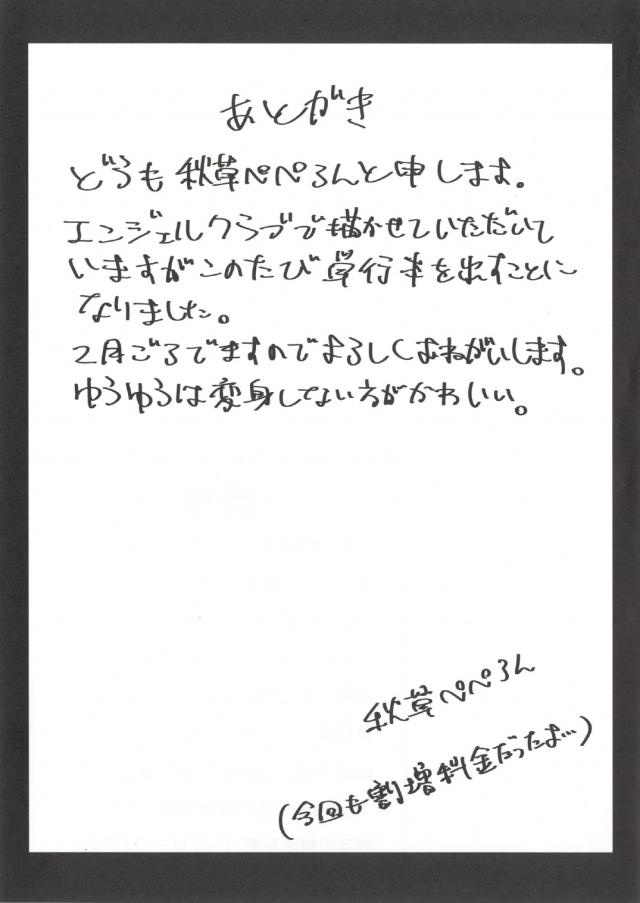 あとがき
どうも 秋草ぺぺろんと申します。
エンジェルクラブで描かせていただいて
いますがこのたび単行本を出すことに
なりました。
2月ごろでますのでよろしくおねがいします。
ゆうゆうは変身してない方がかわいい。
秋草ぺぺろん
(今回も割増料金だったよ…)